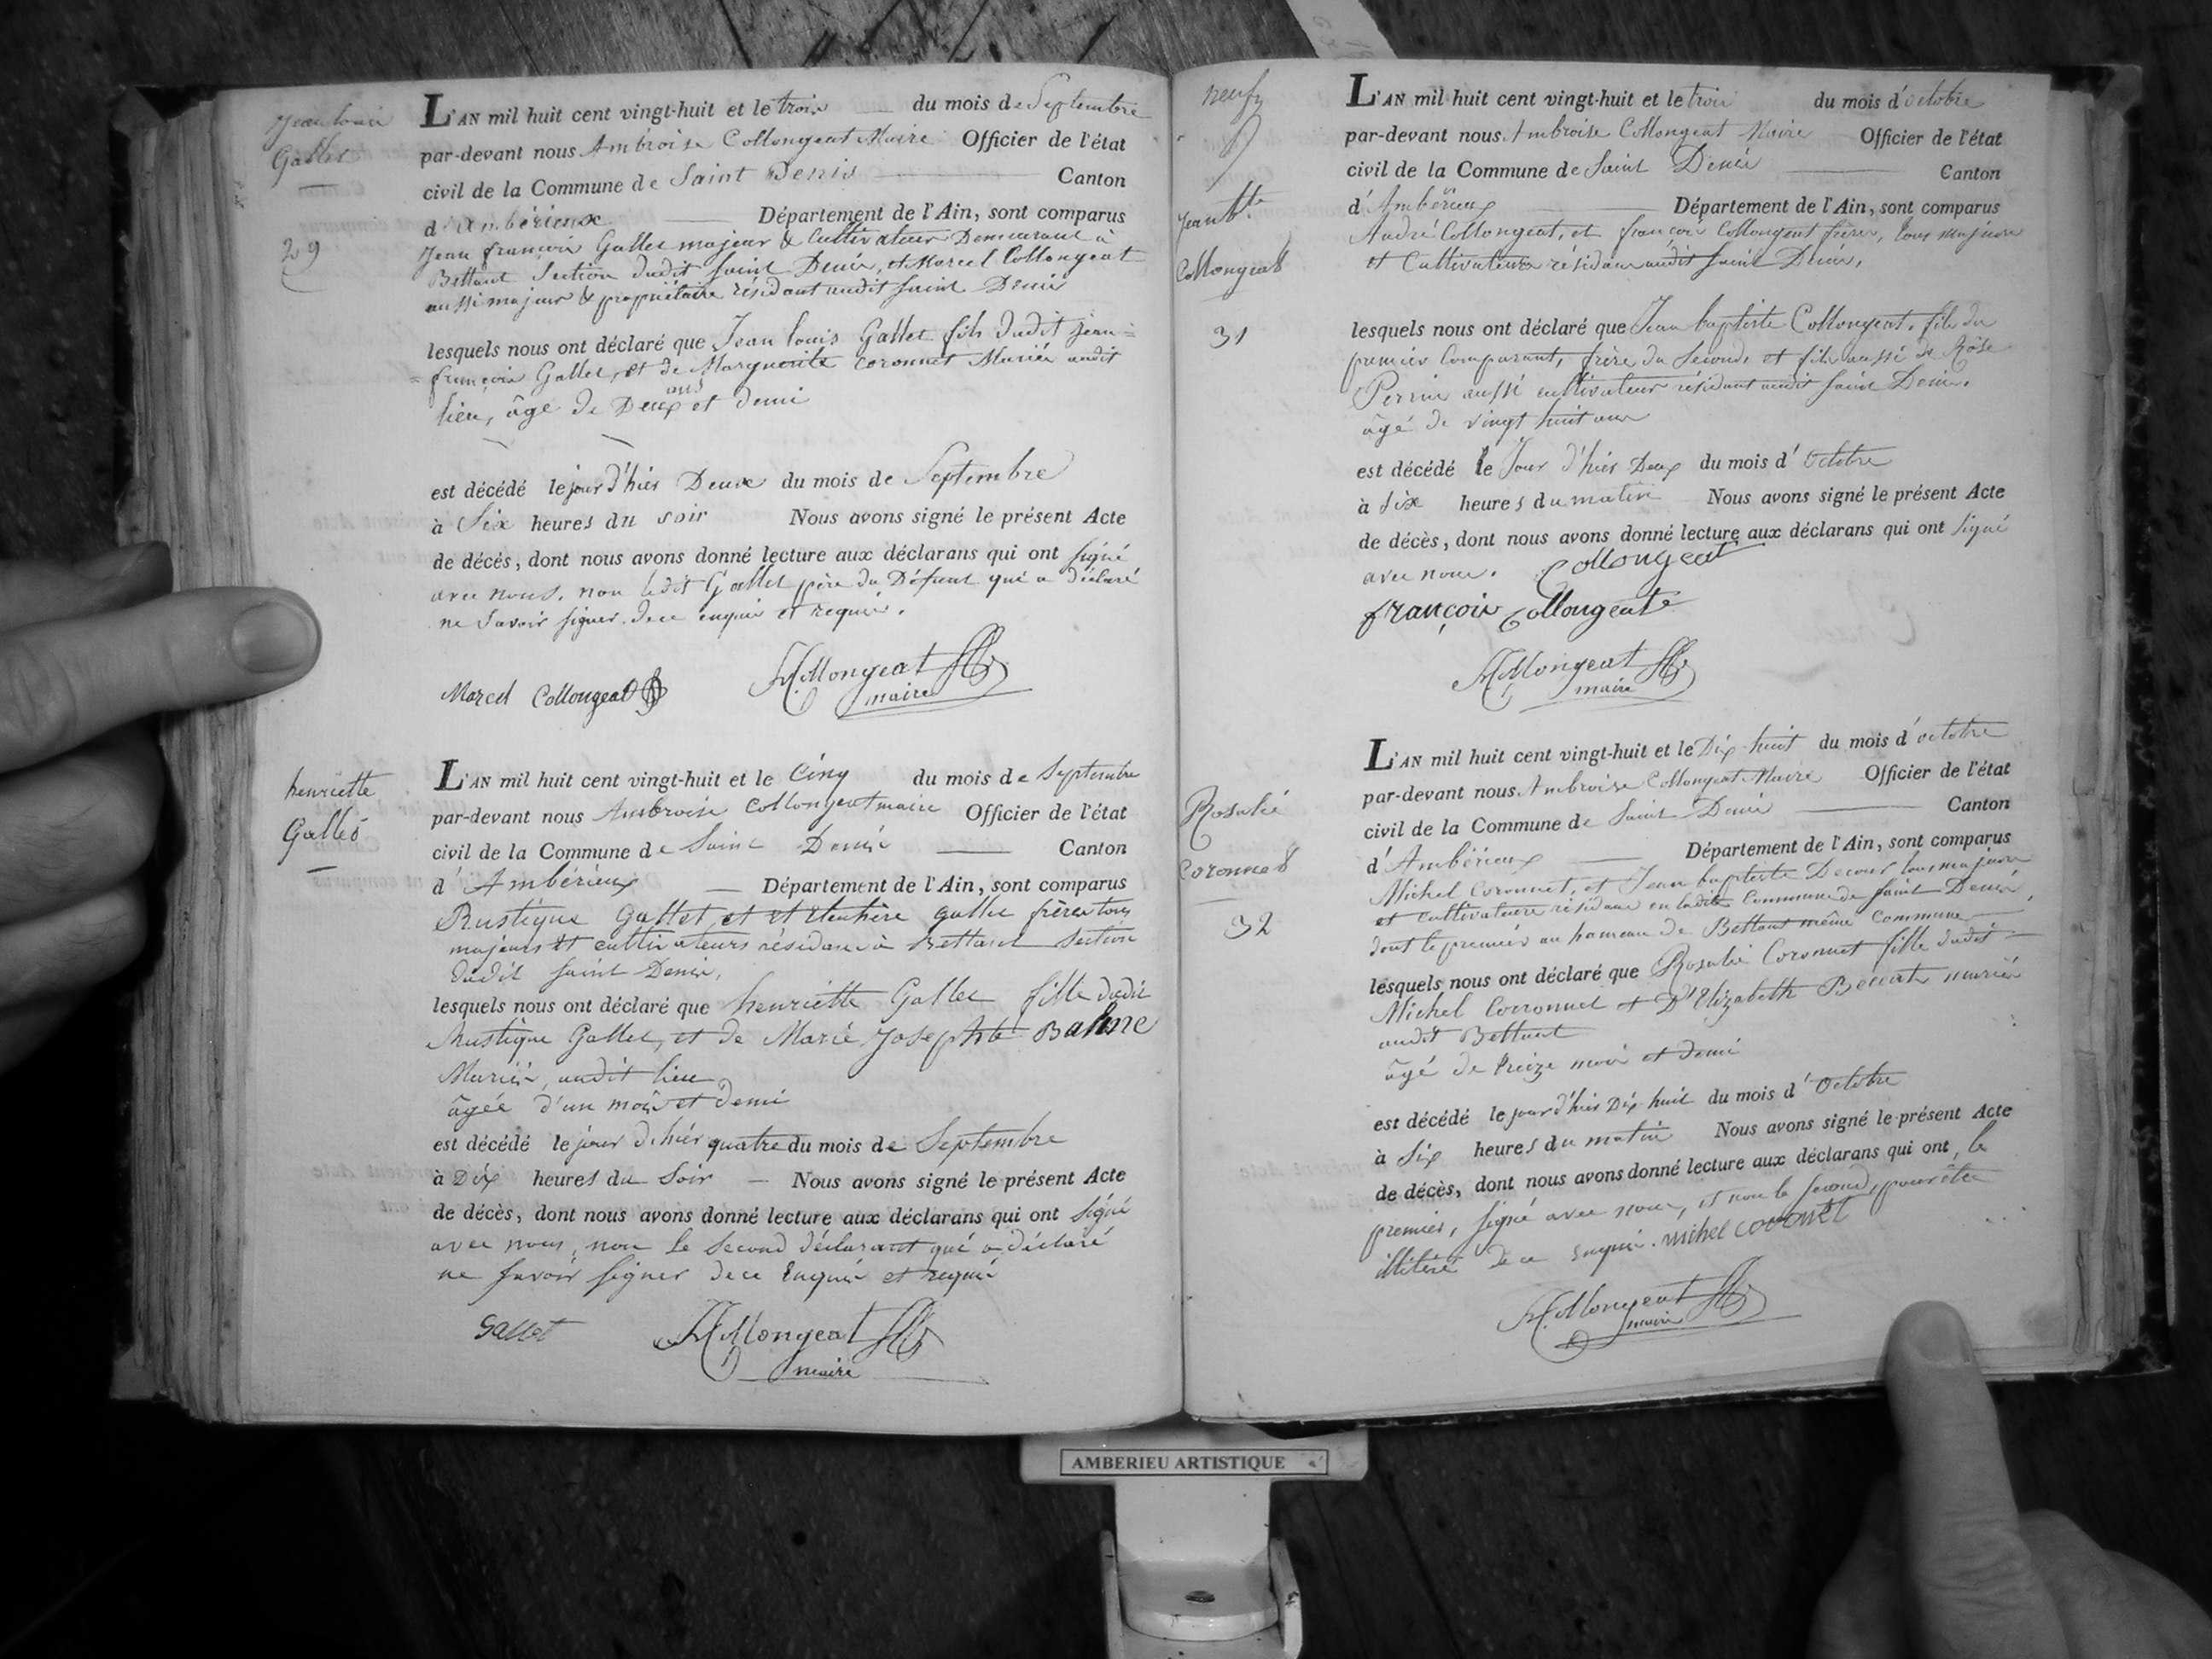 Jean louis
Gallet
29
L'AN mil huit cent vingt-huit et le trois du mois de Septembre
par-devant nous Ambroise Collongeat Maire Officier de l'état
civil de la Commune de Saint Denis Canton
d'Ambérieux Département de l'Ain, sont comparus
Jean françois Gallet majeur & Cultivateur Demeurant à
Bettant Section dudit Saint Denis, et Marcel Collongeat
aussi majeur & propriétaire résidant audit Saint Denis
lesquels nous ont déclaré que Jean louis Gallet fils dudit jean=
=françois Gallet, et de Marguerite Coronnet Mariés audit
lieu, âgé de Deux ans et demi
est décédé le jour d'hier Deux du mois de Septembre
à Six heures du soir Nous avons signé le présent Acte
de décès, dont nous avons donné lecture aux déclarans qui ont signé
avec nous, non ledit Gallet père du Défunt qui a déclaré
ne Savoir signer de ce enquis et requis.
Marcel Collongeat
Collongeat
maire
henriette
Gallet
L'AN mil huit cent vingt-huit et le Cinq du mois de Septembre
par-devant nous Ambroise Collongeat maire Officier de l'état
civil de la Commune de Saint Denis Canton
d'Ambérieux Département de l'Ain, sont comparus
Rustique Gallet et Eleuthère gallet frères tous
majeurs et cultivateurs résidans à Bettant Section
dudit saint Denis,
lesquels nous ont déclaré que henriette Gallet fille dudit
Rustique Gallet, et de Marie Josephte Balme
Mariés, audit lieu
âgée d'un mois et Demi
est décédé le jour d'hier quatre du mois de Septembre
à Dix heures du Soir Nous avons signé le présent Acte
de décès, dont nous avons donné lecture aux déclarans qui ont signé
avec nous, non le Second déclarant qui a déclaré
ne Savoir signer de ce Enquis et requis
Gallet
Collongeat
maire
Jean Bte
Collongeat
31
L'AN mil huit cent vingt-huit et le trois du mois d'octobre
par-devant nous Ambroise Collongeat Maire Officier de l'état
civil de la Commune de Saint Denis Canton
d'Ambérieux Département de l'Ain, sont comparus
André Collongeat, et françois Collongeat frères, tous majeurs
et Cultivateurs résidans audit Saint Denis,
lesquels nous ont déclaré que Jean baptiste Collongeat, fils du
premier Comparant, frère du Second, et fils aussi de Rose
Perrin aussi cultivateur résidant audit Saint Denis.
âgé de vingt huit ans
est décédé le Jour d'hier Deux du mois d'Octobre
à six heures du matin Nous avons signé le présent Acte
de décès, dont nous avons donné lecture aux déclarans qui ont signé
avec nous. Collongeat
françois Collongeat
Collongeat
maire
Rosalie
Coronnet
32
L'AN mil huit cent vingt-huit et le Dix-huit du mois d'octobre
par-devant nous Ambroise Collongeat Maire Officier de l'état
civil de la Commune de Saint Denis Canton
d'Ambérieux Département de l'Ain, sont comparus
Michel Coronnet, et Jean baptiste Decour tous majeurs
et cultivateurs résidans en ladite Commune de saint Denis,
dont le premier au hameau de Bettant même Commune
lesquels nous ont déclaré que Rosalie Coronnet fille dudit
Michel Corronnet et D' Elizabeth mariés
audit Bettant
âgé de treize mois et demi
est décédé le jour d'hier Dix huit du mois d'Octobre
à Six heures du matin Nous avons signé le présent Acte
de décès, dont nous avons donné lecture aux déclarans qui ont, le
premier, signé avec nous, et non le second, pour être
illitéré de ce Enquis. Michel Coronnet
Collongeat
maire
AMBERIEU ARTISTIQUE